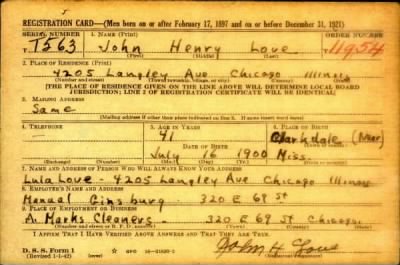 REGISTRATION CARD—(Men born on or after February 17, 1897 and on or before December 31, 1921)
SERIAL NUMBER 1. NAME (Print) ORDER NUMBER
T563 John Henry Love 11954
2. PLACE OF RESIDENCE (Print)
4205 Langley Ave Chicago Illinois
(Number and street) (Town, township, village, or city) (County) (State)
[THE PLACE OF RESIDENCE GIVEN ON THE LINE ABOVE WILL DETERMINE LOCAL BOARD
JURISDICTION; LINE 2 OF REGISTRATION CERTIFICATE WILL BE IDENTICAL]
3. MAILING ADDRESS
Same
[Mailing address if other than place indicated on line 2. If same insert word same]
4. TELEPHONE 5. AGE IN YEARS 6. PLACE OF BIRTH
41 Clarkdale (Near)
DATE OF BIRTH
July 16 1900 Miss.
(Exchange) (Number) (Mo.) (Day) (Yr.) (State or country)
7. NAME AND ADDRESS OF PERSON WHO WILL ALWAYS KNOW YOUR ADDRESS
Lula Love - 4205 Langley Ave Chicago Illinois
8. EMPLOYER'S NAME AND ADDRESS
Manual Ginsburg 320 E 69 St
9. PLACE OF EMPLOYMENT OR BUSINESS
A. Marks Cleaners - 320 E 69 St Chicago
(Number and street or R. F. D. number) (Town) (County) (State)
I AFFIRM THAT I HAVE VERIFIED ABOVE ANSWERS AND THAT THEY ARE TRUE.
D. S. S. Form 1
(Revised 1-1-42) (over) GPO 16—21630-2
John H Love
(Registrant's signature)